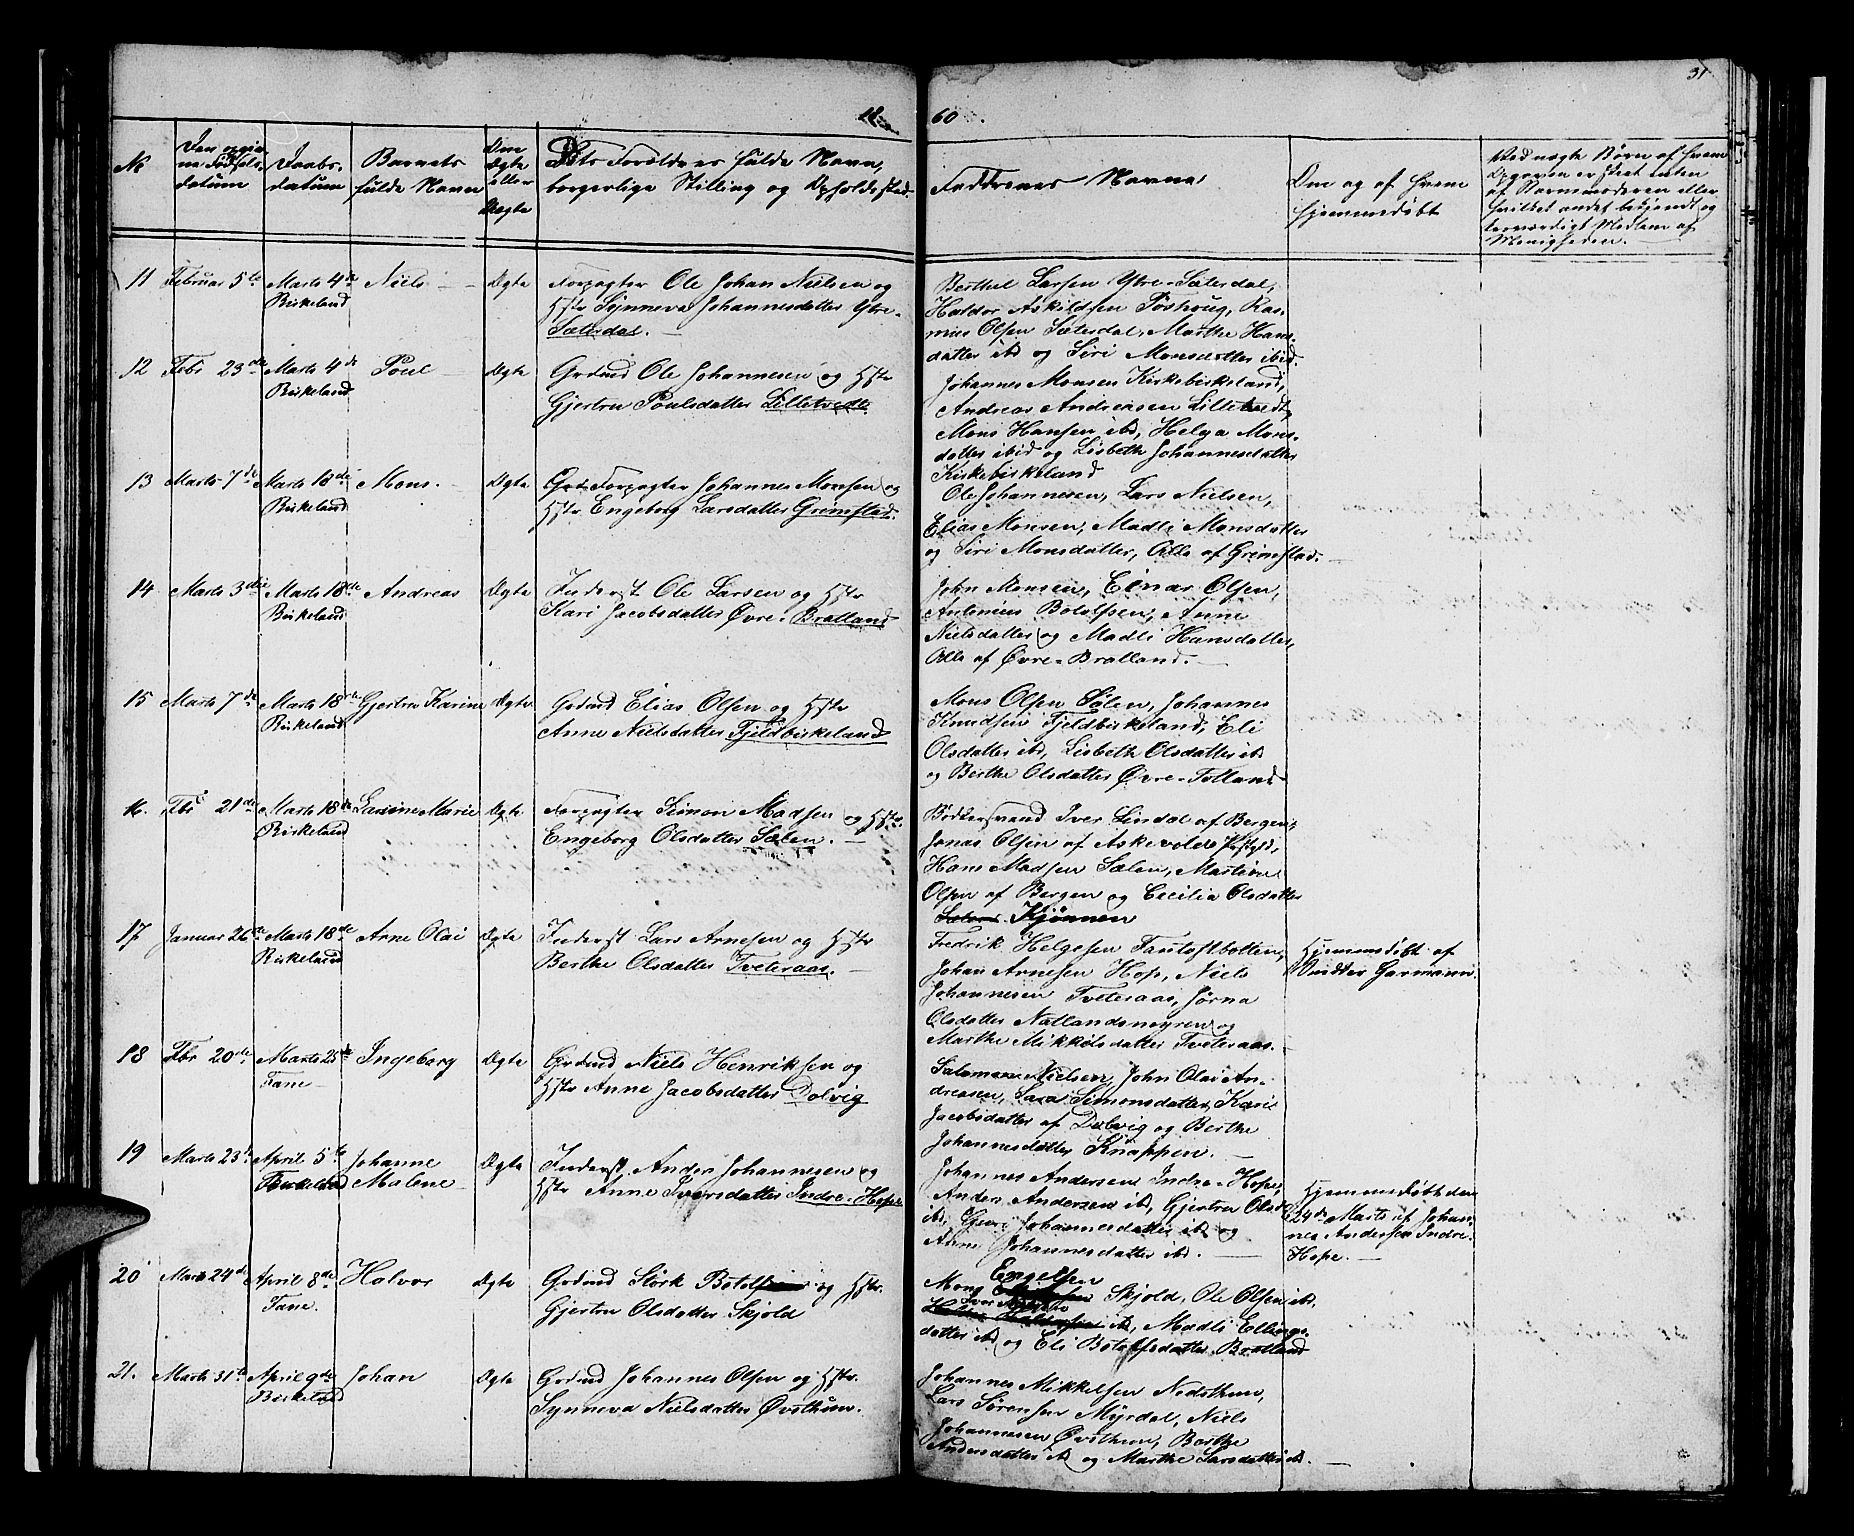 31
18
60
No
Den opgiv-
ne Fødsels-
datum
Daabs-
datum
Barnets
fulde Navn
Om
Ægte
eller
Uægte
Dets Forældres fulde Navn,
borgerlige Stilling og Opholdssted.
Faddrenes Navne
Om og af hvem
hjemmedøbt
Ved uægte Børn af hvem
Opgaven er skeet enten
af Barnemoderen eller
hvilket andet bekjendt og
troværdigt Medlem af
Menigheden.
11 Februar 5te Marts 4de Niels Ægte Forpagter Ole Johan Nielsen og
Birkeland Hstr Synneva Johannesdatter Ytre-
Sætesdal.
Berthel Larsen Ytre-Sætesdal,
Haldor Askildsen Røshoug, Ras-
mus Olsen Sætesdal, Marthe Hans-
datter ibd og Siri Monsdatter ibid.
12 Febr 23de Marts 4de Poul Ægte Grdmd Ole Johannesen og Hstr
Birkeland Gjertru Poulsdatter Lilletvedt
Johannes Monsen Kirkebirkeland,
Andreas Andreassen Lilletvedt,
Mons Hansen ibd, Helga Mons-
datter ibid og Lisbeth Johannesdatter
Kirkebirkeland
13 Marts 7de Marts 18de Mons. Ægte Forpagter Johannes Monsen og
Birkeland Hstr Engeborg Larsdatter Grimstad.
Ole Johannesen, Lars Nielsen,
Elias Monsen, Madli Monsdatter
og Siri Monsdatter, Alle af Grimstad.
14 Marts 3die Marts 18de Andreas Ægte Inderst Ole Larsen og Hstr
Birkeland Kari Jacobsdatter Øvre-Bratland
John Monsen, Einar Olsen,
Antonius Botolfsen, Anne
Nielsdatter og Madli Hansdatter,
Alle af Øvre-Bratland.
15 Marts 7de Marts 18de Gjertru Karine Ægte Grdmd Elias Olsen og Hstr
Birkeland Anne Nielsdatter Fjeldbirkeland
Mons Olsen Sølen, Johannes
Knudsen Fjeldbirkeland, Eli
Olsdatter ibd, Lisbeth Olsdatter ibd
og Berthe Olsdatter Øvre-Totland
16. Fbr 21de Marts 18de Lassine Marie Ægte Forpagter Simon Madsen og Hstr.
Birkeland Engeborg Olsdatter Sælen.
Bødkersvend Iver Lindal af Bergen,
Jonas Olsen af Askevolds
Hans Madsen Sælen, Martine
Olsen af Bergen og Cecilia Olsdatter
Kjønnen
17 Januar 26de Marts 18de Arne Olai Ægte Inderst Lars Arnesen og Hstr
Birkeland Berthe Olsdatter Tveteraas.
Fredrik Helgesen Fantoftbotten,
Johan Arnesen Hop, Niels
Johannesen Tveteraas, Jørna
Olsdatter Natlandsmyren og
Marthe Mikkelsdatter Tveteraas.
Hjemmedøbt af
Garmann.
18 Fbr 20de Marts 25de Ingeborg Ægte Grdmd Niels Henriksen og
Fane Hstr Anne Jacobsdatter Dolvig
Salomon Nielsen, John Olai An-
dreasen, Sara Simonsdatter, Kari
Jacobsdatter af Dolvig og Berthe
Johannesdatter Knappen.
19 Marts 23de April 5te Johanne Ægte Inderst Anders Johannesen og
Birkeland Malene Hstr Anne Iversdatter Indre-Hope
Johannes Andersen Indre-Hope,
Anders Andersen ibd, Gjertru Olsd
ibd, Guri Johannesdatter ibd og
Anne Johannesdatter ibd.
Hjemmedøbt den
24de Marts af Johan-
nes Andersen Indre-
Hope.
20 Marts 24de April 8de Halvor Ægte Grdmd Størk Botolfsen og Hstr.
Fane. Gjertru Olsdatter Skjold
Engelsen
Mons Skjold, Ole Olsen ibd.
ibd, Madli Ellings-
datter ibd og Eli Botolfsdatter Bratland
21. Marts 31te April 9de Johan Ægte Grdmd Johannes Olsen og Hstr.
Birkeland Synneva Nielsdatter Øvsthun.
Johannes Mikkelsen Nedsthun,
Lars Sørensen Myrdal, Niels
Johannesen Øvsthun, Berthe
Andersdatter ibd og Marthe Larsdatter ibd.